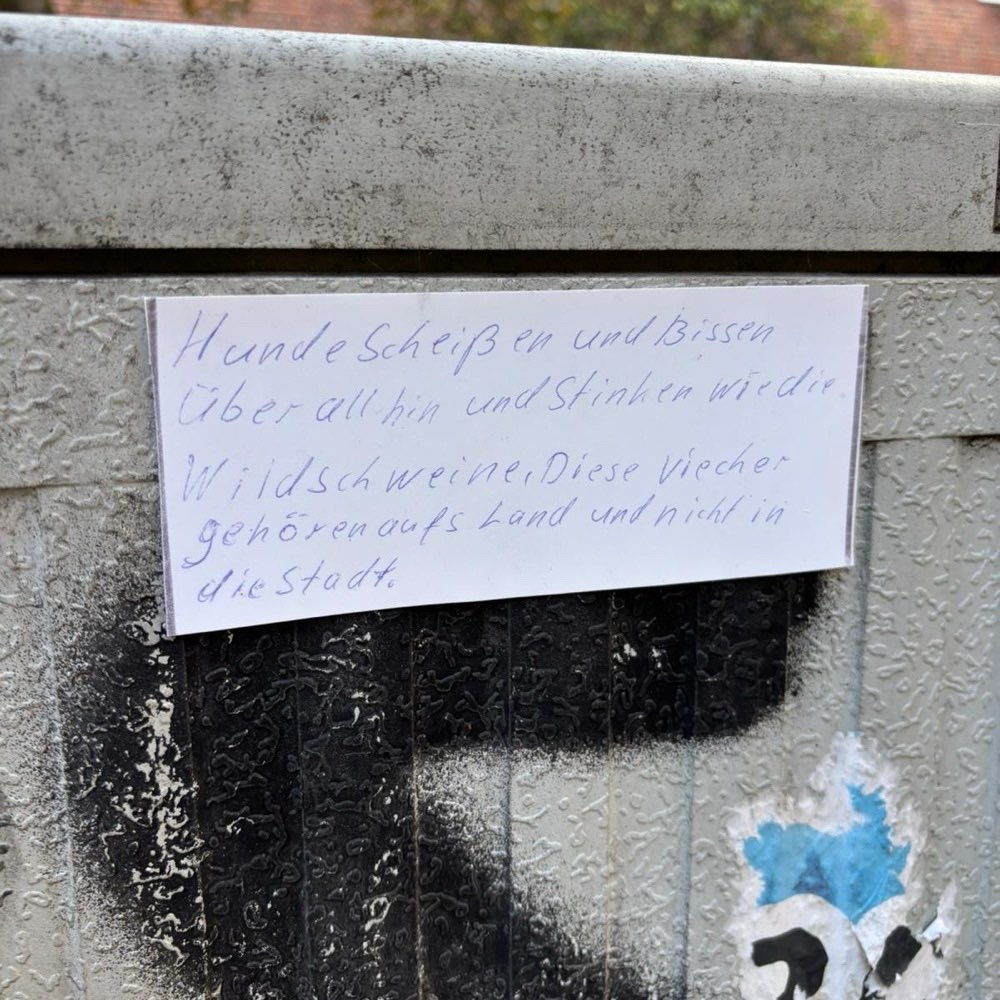 Hunde Scheißen und Bissen
Über all hin und Stinken wie die
Wildschweine. Diese Viecher
gehören aufs Land und nicht in
die Stadt.
A